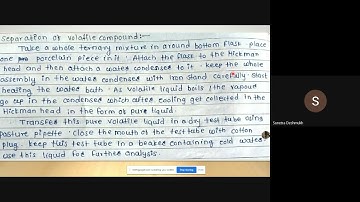 Separation of volatile compound:-
Take a whole ternary mixture in around bottom flask place
one porcelain piece in it. Attach the flask to the Hickman
head and then attach a water condenser to it. keep the whole
assembly in the water condensed with iron stand carefully. Start
heating the water bath. As volatile liquid boils the vapour
go up in the condenser which after cooling get collected in the
Hickman head in the form of pure liquid.
Transfer this pure volatile liquid in a dry test tube using
pasture pipette. close the mouth of the test tube with cotton
plug. keep this test tube in a beaker containing cold water
use this liquid for further analysis.
S
Suneeta Deshmukh